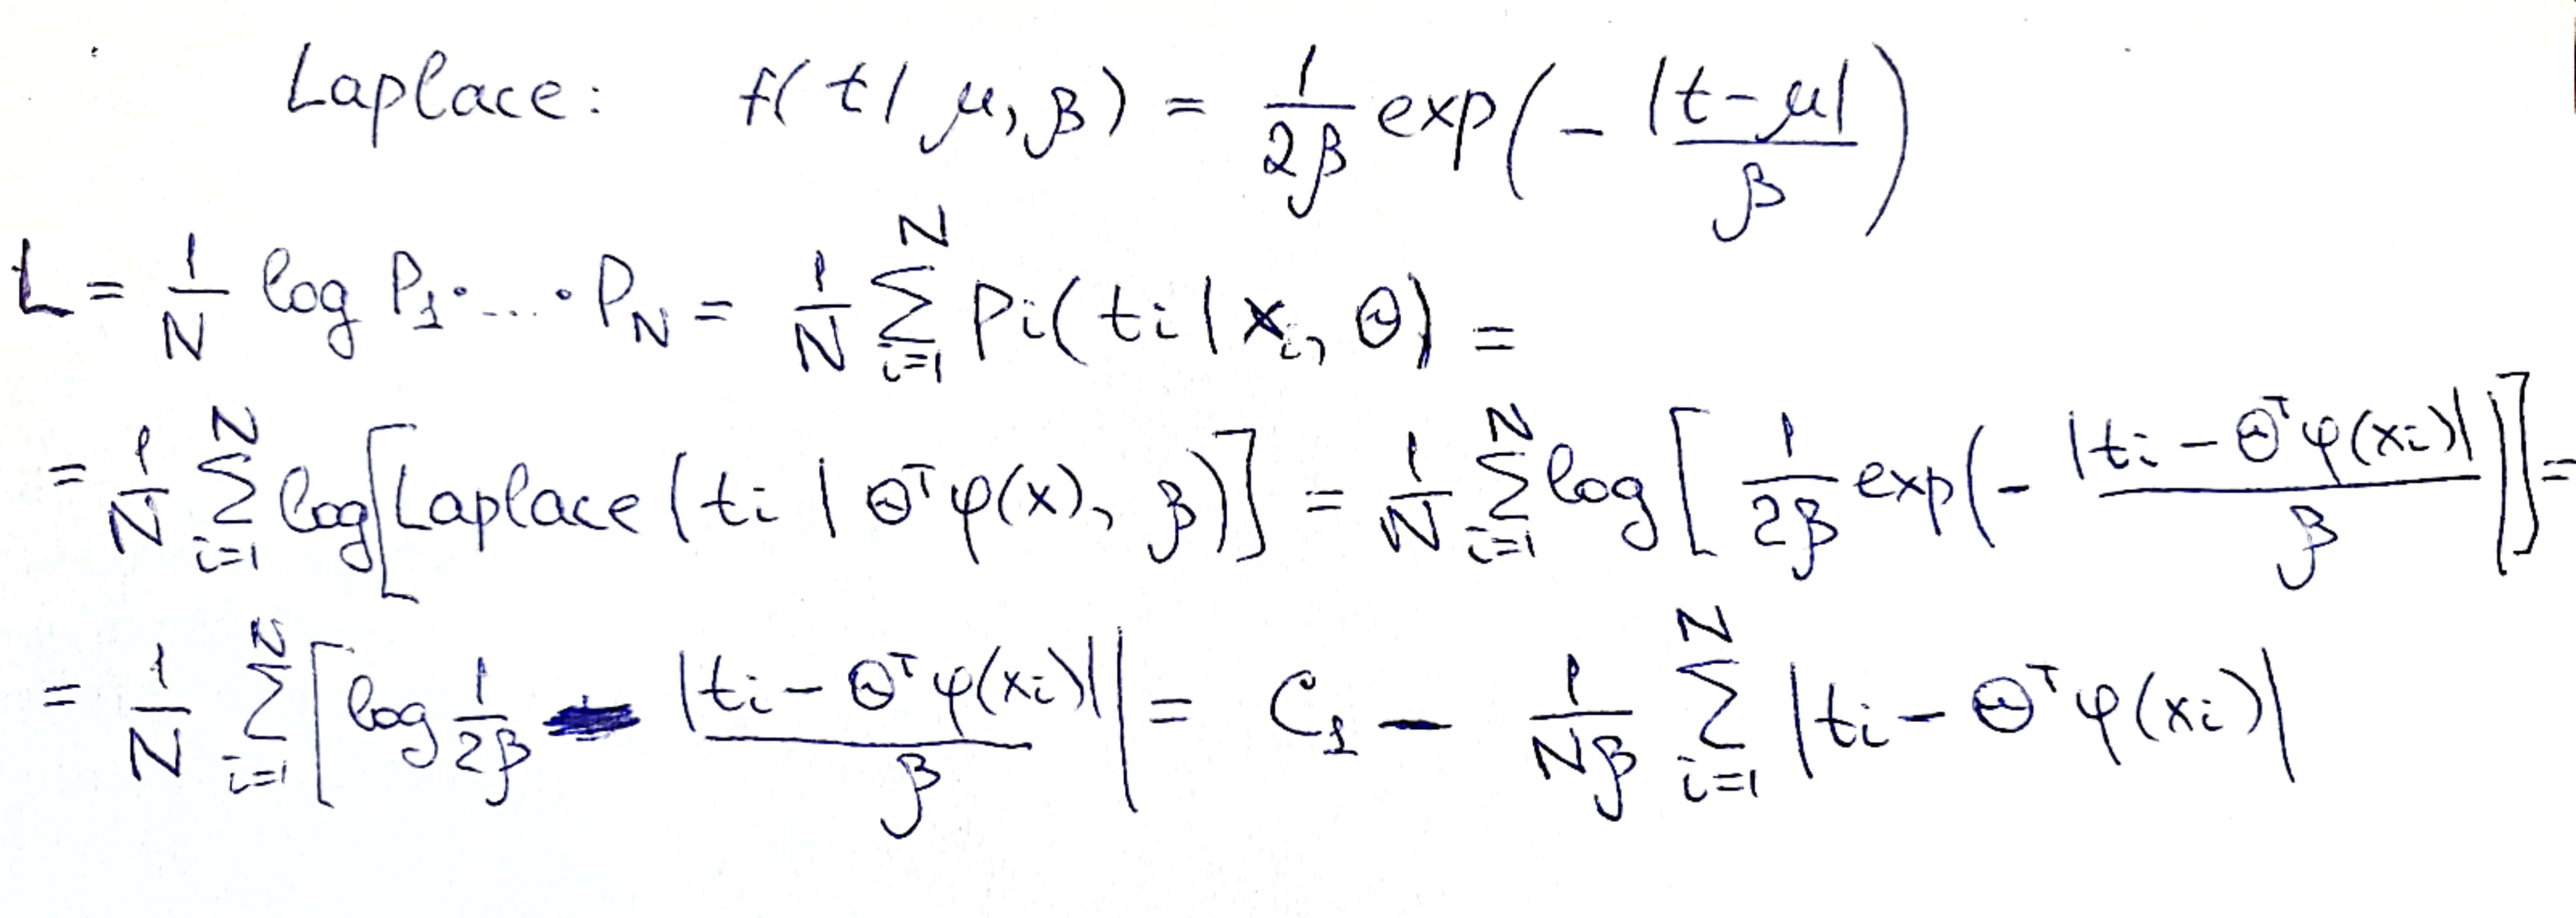 Laplace: f(t | μ, β) = \frac{1}{2β} exp(- \frac{|t-μ|}{β})
L = \frac{1}{N} log P_1 · ... · P_N = \frac{1}{N} \sum_{i=1}^{N} p_i(t_i | x_i, Θ) =
= \frac{1}{N} \sum_{i=1}^{N} log[Laplace(t_i | Θ^T φ(x), β)] = \frac{1}{N} \sum_{i=1}^{N} log[\frac{1}{2β} exp(- \frac{|t_i - Θ^T φ(x_i)|}{β})] =
= \frac{1}{N} \sum_{i=1}^{N} [log \frac{1}{2β} - \frac{|t_i - Θ^T φ(x_i)|}{β}] = C_1 - \frac{1}{Nβ} \sum_{i=1}^{N} |t_i - Θ^T φ(x_i)|